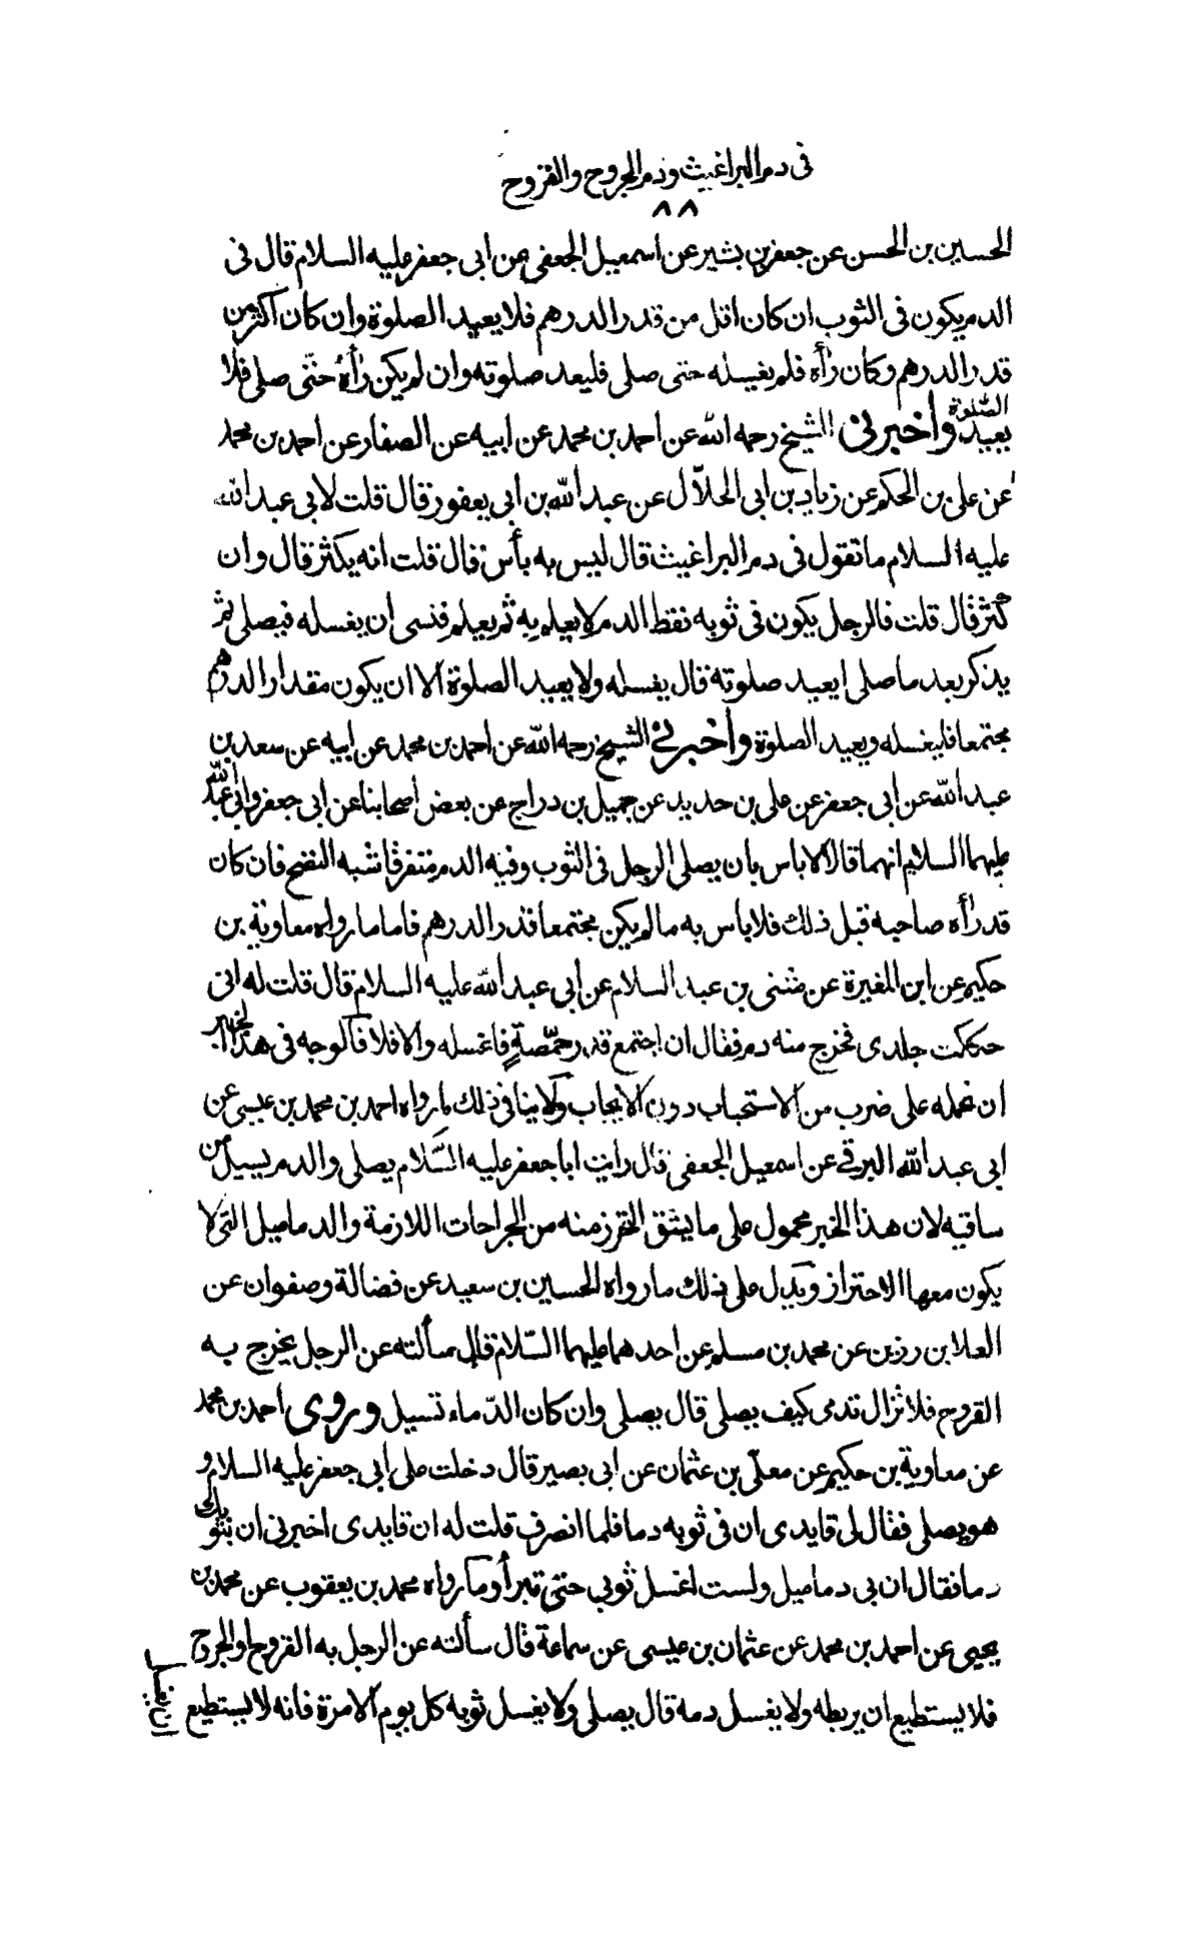 فى دم البراغيث ودم الجروح والقروح
٨٨
الحسين بن الحسن عن جعفر بن بشير عن اسمعيل الجعفى عن ابى جعفر عليه السلام قال فى
الدم يكون فى الثوب ان كان اقل من قدر الدرهم فلا يعيد الصلوة وان كان اكثر من
قدر الدرهم وكان رأه فلم يغسله حتى صلى فليعد صلوته وان لم يكن رأه حتّى صلى فلا
يعيد الصّلوة واخبرنى الشيخ رحمه الله عن احمد بن محمد عن ابيه عن الصفار عن احمد بن محمد
عن على بن الحكم عن زياد بن ابى الحلاّل عن عبد الله بن ابى يعفور قال قلت لابى عبد الله
عليه السلام ما تقول فى دم البراغيث قال ليس به بأس قال قلت انه يكثر قال وان
كثر قال قلت فالرجل يكون فى ثوبه نقط الدم لا يعلم به ثم يعلم فنسى ان يغسله فيصلى ثم
يذكر بعد ما صلى ايعيد صلوته قال يغسله ولا يعيد الصلوة الا ان يكون مقدار الدرهم
مجتمعا فليغسله ويعيد الصلوة واخبرنى الشيخ رحمه الله عن احمد بن محمد عن ابيه عن سعد بن
عبد الله عن ابى جعفر عن على بن حديد عن جميل بن دراج عن بعض أصحابنا عن ابى جعفر وابى عبد الله
عليهما السلام انهما قالا لا باس بان يصلى الرجل فى الثوب وفيه الدم متفرقا شبه النضح فان كان
قد رأه صاحبه قبل ذلك فلا باس به ما لم يكن مجتمعا قدر الدرهم فاما ما رواه معاوية بن
حكيم عن ابن المغيرة عن مثنى بن عبد السلام عن أبى عبد الله عليه السلام قال قلت له انى
حككت جلدى فخرج منه دم فقال ان اجتمع قدر حمّصةٍ فاغسله والا فلا فالوجه فى هذا الخبر
ان نحمله على ضرب من الاستحباب دون الايجاب ولا ينافى ذلك ما رواه احمد بن محمد بن عيسى عن
ابى عبد الله البرقى عن اسمعيل الجعفى قال رايت ابا جعفر عليه السّلام يصلى والدم يسيل من
ساقيه لان هذا الخبر محمول على ما يشق التحرز منه من الجراحات اللازمة والدماميل التى لا
يكون معها الاحتراز ويدل على ذلك ما رواه الحسين بن سعيد عن فضالة وصفوان عن
العلا بن رزين عن محمد بن مسلم عن احدهما عليهما السّلام قال سألته عن الرجل يخرج به
القروح فلا تزال تدمى كيف يصلى قال يصلى وان كان الدّماء تسيل وروى احمد بن محمد
عن معاوية بن حكيم عن معلّى بن عثمان عن ابى بصير قال دخلت على ابى جعفر عليه السلام و
هو يصلى فقال لى قايدى ان فى ثوبه دما فلما انصرف قلت له ان قايدى اخبرنى ان بثوبك
دما فقال ان بى دماميل ولست اغسل ثوبى حتى تبرأ وما رواه محمد بن يعقوب عن محمد بن
يحيى عن احمد بن محمد عن عثمان بن عيسى عن سماعة قال سألته عن الرجل به القروح او الجروح
فلا يستطيع ان يربطه ولا يغسل دمه قال يصلى ولا يغسل ثوبه كل يوم الا مرة فانه لا يستطيع